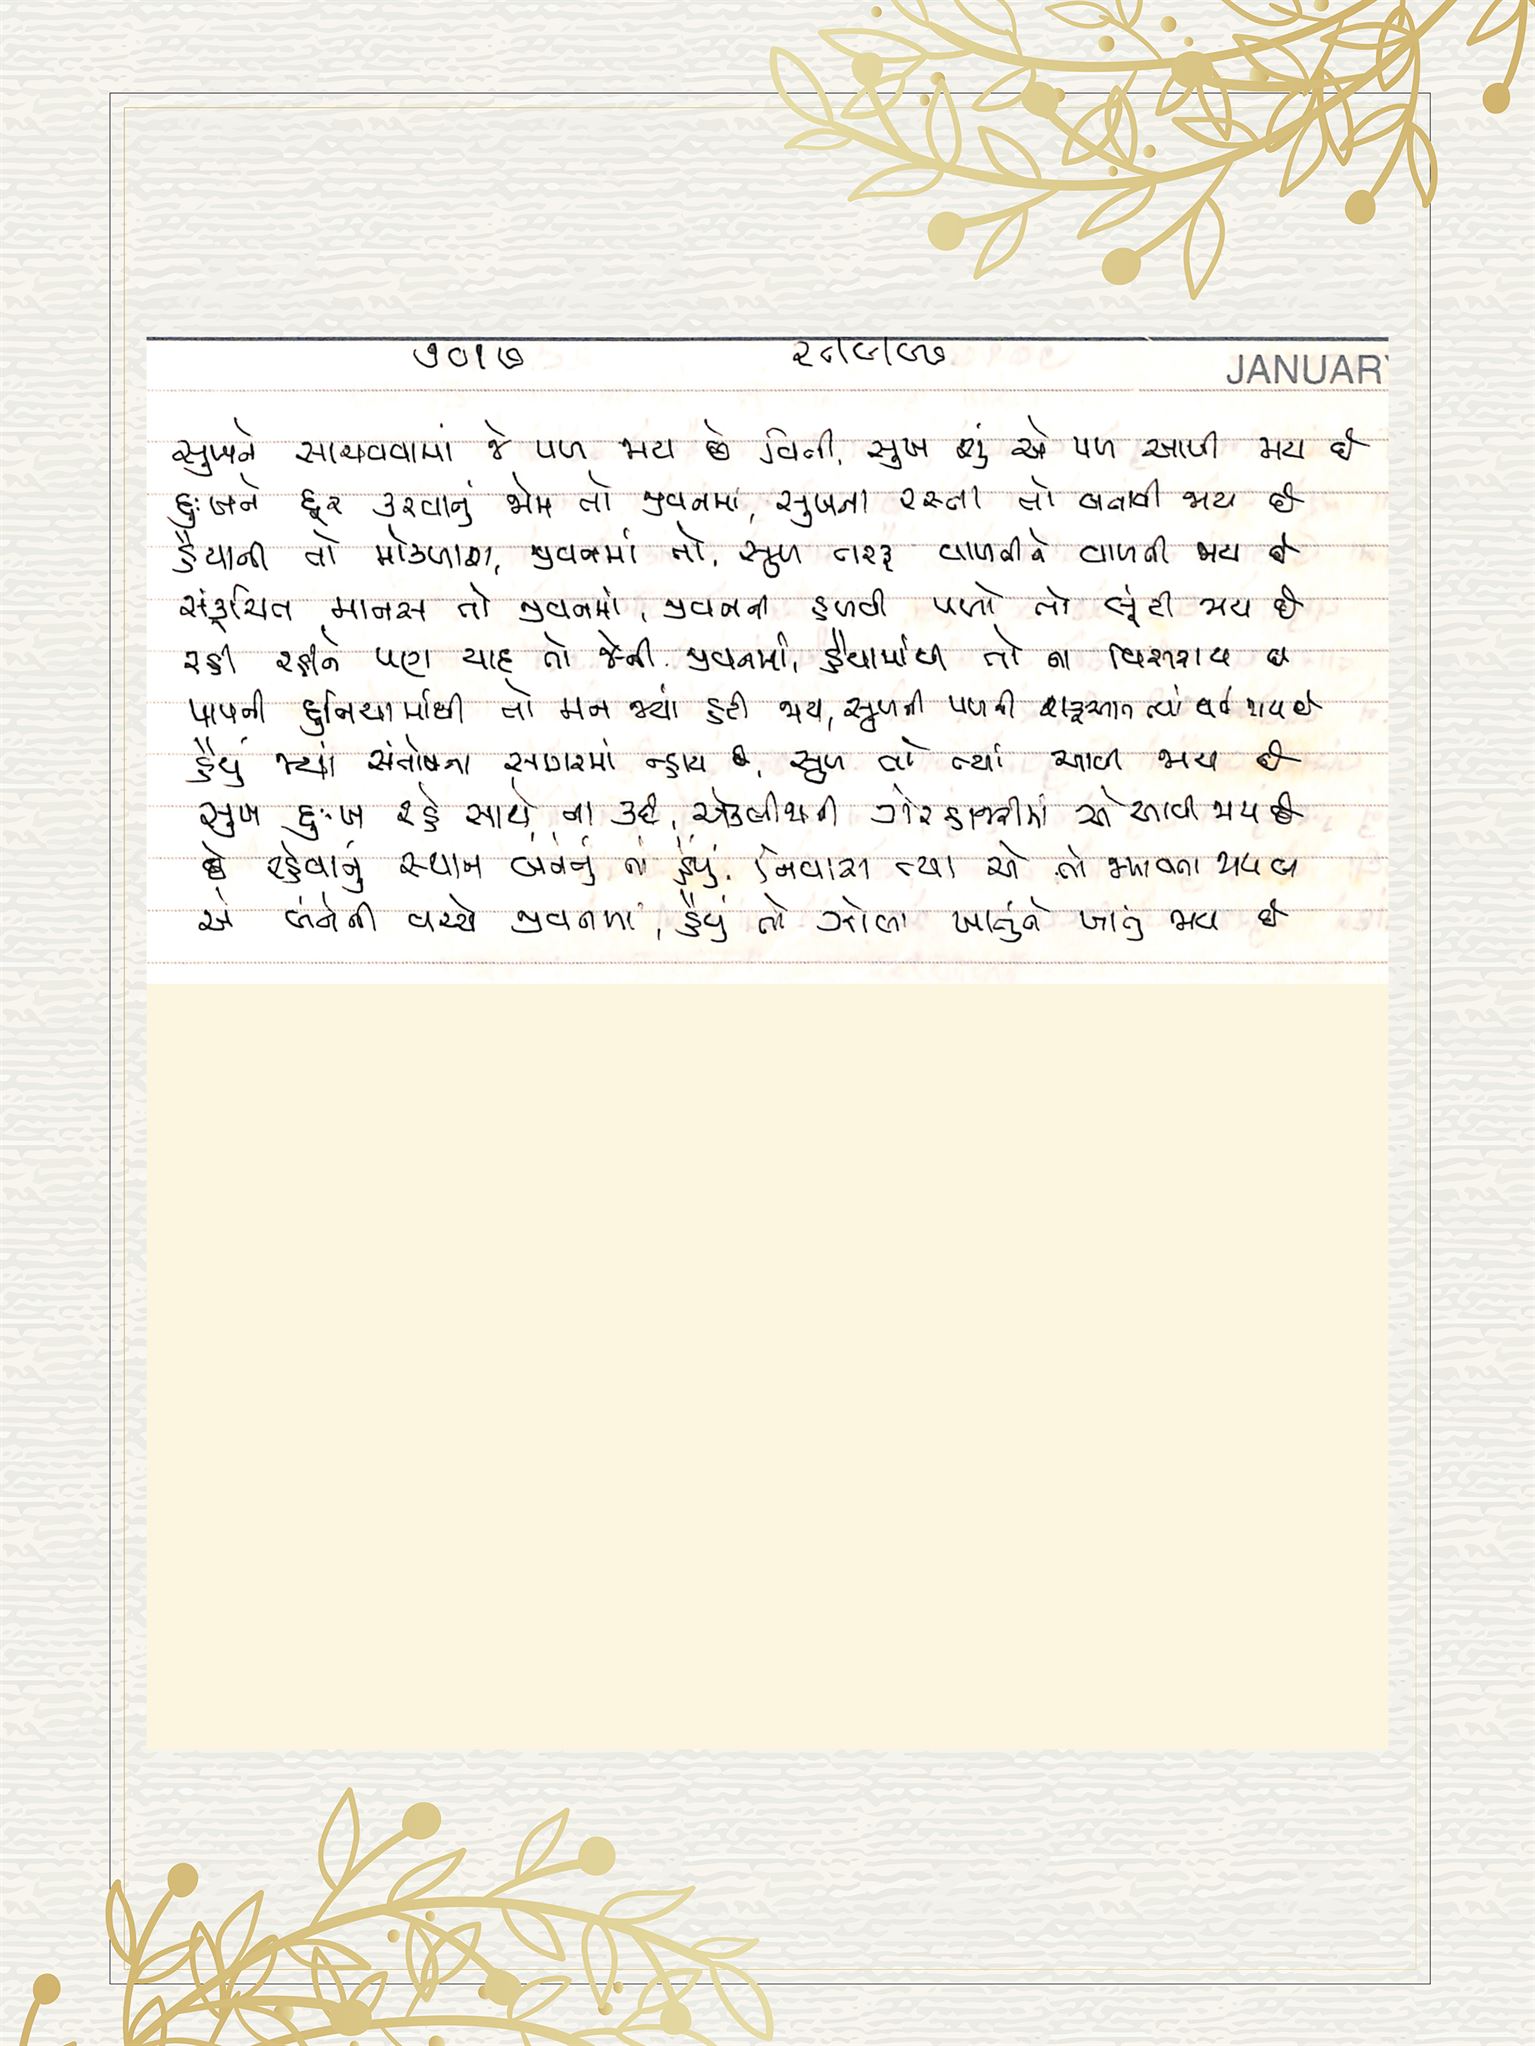 ૭૦૧૭
JANUAR
સુખને સાચવવામાં જે પળ જાય છે વિતી, સુખ શું એ પળ આપી જાય છે
દુઃખને દૂર કરવાનું જોમ તો જીવનમાં, સુખના રસ્તા તો બનાવી જાય છે
હૈયાની તો મોકળાશ, જીવનમાં તો, સુખ તરફ વાળતી જાય છે
સંકૂચિત માનસ તો જીવનમાં, જીવનની હળવી પળો તો લૂંટી જાય છે
રહી રહીને પણ યાદ તો જેની જીવનમાં, હૈયામાંથી તો ના વિસરાય છે
પાપની દુનિયામાંથી તો મન જ્યાં હટી જાય, સુખની પળની શરૂઆત ત્યાં થાય છે
હૈયું જ્યાં સંતોષના સાગરમાં ન્હાય છે, સુખ તો ત્યાં આવી જાય છે
સુખ દુઃખ રહે સાથે ના કદી, એકબીજાની ગેરહાજરીમાં એ આવી જાય છે
છે રહેવાનું સ્થાન બંનેનું તો હૈયું, નિવાસ ત્યાં એ તો
એ બંનેની વચ્ચે જીવનમાં, હૈયું તો ઝોલા ખાતુંને ખાતું જાય છે